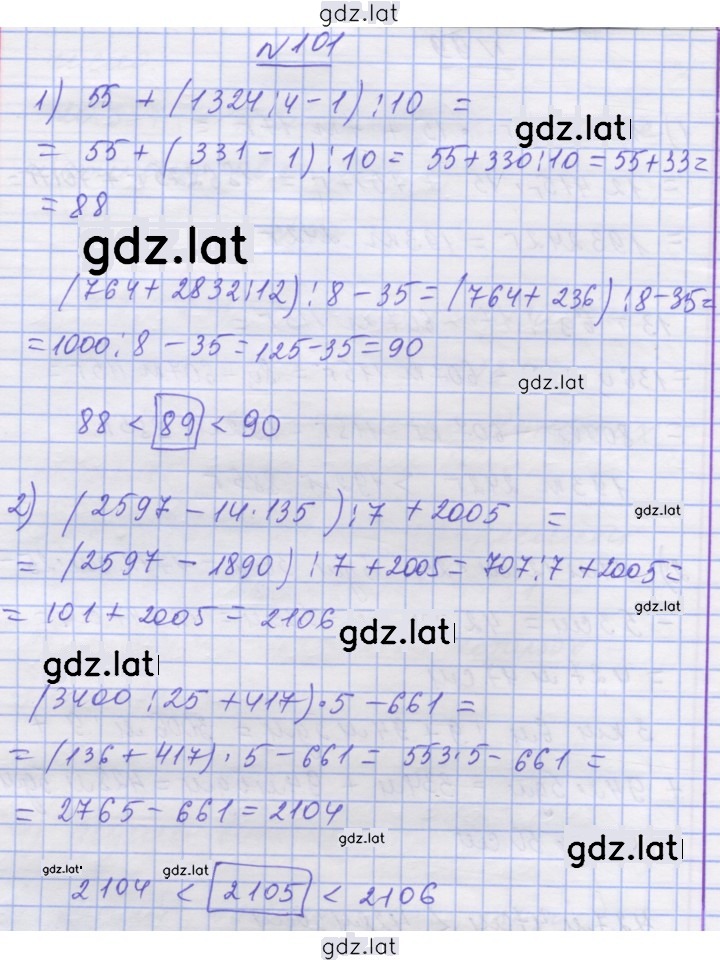 gdz.lat
№101
1) 55 + (1324:4-1):10 =
gdz.lat
= 55+(331-1):10 = 55+330:10=55+33=
= 88
gdz.lat
(764+2832:12):8-35=(764+236):8-35=
=1000:8-35=125-35=90
gdz.lat
88 < 89 < 90
2) (2597-14·135):7+2005 =
gdz.lat
= (2597-1890):7+2005= 707:7+2005=
gdz.lat
= 101+2005=2106
gdz.lat
gdz.lat
(3400:25+417)·5-661=
= (136+417)·5-661= 553·5-661=
= 2765-661=2104
gdz.lat
gdz.lat
gdz.lat gdz.lat
2104 < 2105 < 2106
gdz.lat